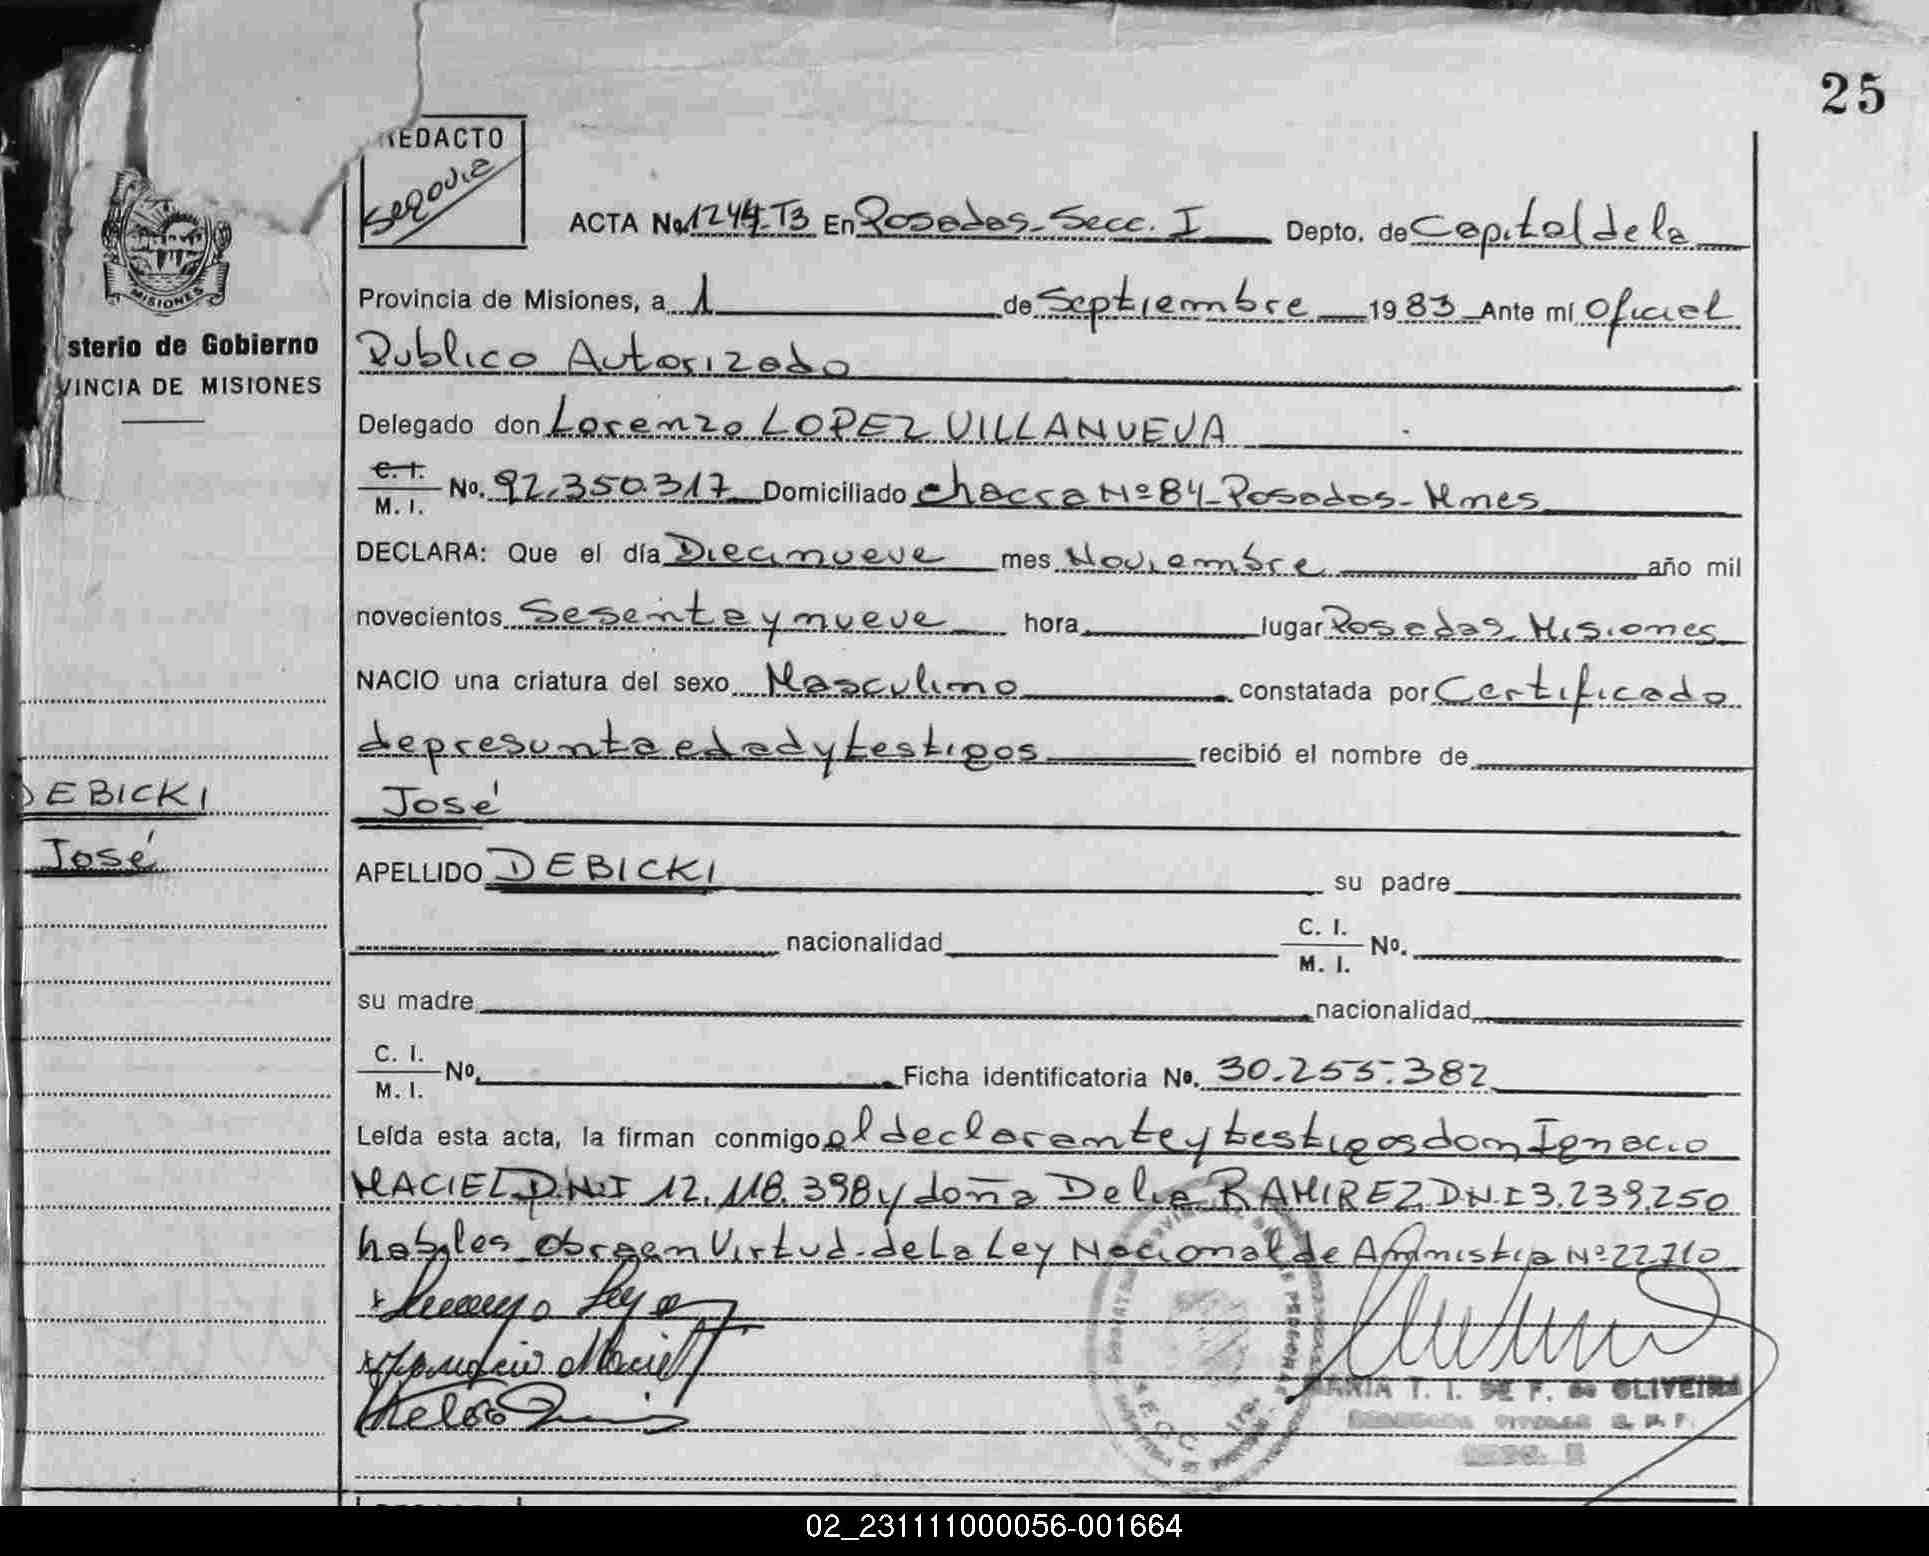 25
REDACTO
Segovia
ACTA No. 1244-T3 En Posadas-Secc. I Depto. de Capital de la
Provincia de Misiones, a 1 de Septiembre 1983 Ante mí Oficial
Publico Autorizado
MISIONES
sterio de Gobierno
VINCIA DE MISIONES
Delegado don Lorenzo LOPEZ VILLANUEVA
C. I.
M. I. No. 92.350.317 Domiciliado chacra Nº 84-Posadas-Mnes
DECLARA: Que el día Diecinueve mes Noviembre año mil
novecientos Sesenta y nueve hora lugar Posadas, Misiones
NACIO una criatura del sexo Masculino constatada por Certificado
de presunta edad y testigos recibió el nombre de
DEBICKI
José
José
APELLIDO DEBICKI su padre
nacionalidad C. I.
M. I. No.
su madre nacionalidad
C. I.
M. I. No. Ficha identificatoria No. 30.255.382
Leída esta acta, la firman conmigo el declarante y testigos don Ignacio
MACIEL D.N.I 12.118.398 y doña Delia RAMIREZ D.N.I 3.239.250
habiles obra en Virtud de la Ley Nacional de Amnistia Nº 22.710
MARIA T. I. DE F. de OLIVEIRA
SECC. 1ra.
02_231111000056-001664